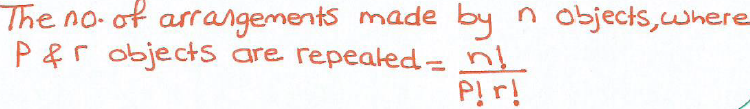 The no. of arrangements made by n objects, where
P & r objects are repeated = n!/P! r!